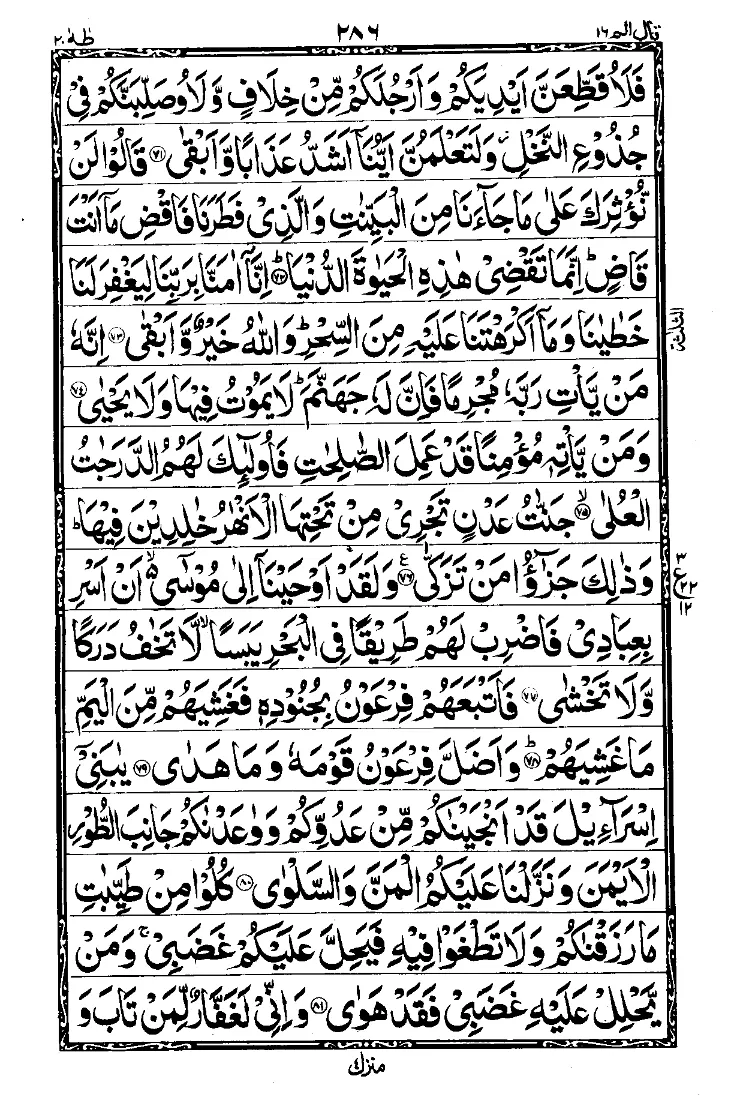 قال الم ١٦ ٢٨٦ طٰهٰ ٢٠
فَلَاُقَطِّعَنَّ اَيْدِيَكُمْ وَاَرْجُلَكُمْ مِّنْ خِلَافٍ وَّلَاُوصَلِّبَنَّكُمْ فِيْ
جُذُوْعِ النَّخْلِ ۫ وَلَتَعْلَمُنَّ اَيُّنَاۤ اَشَدُّ عَذَابًا وَّاَبْقٰى ﴿٧١﴾ قَالُوْا لَنْ
نُّؤْثِرَكَ عَلٰى مَا جَآءَنَا مِنَ الْبَيِّنٰتِ وَالَّذِيْ فَطَرَنَا فَاقْضِ مَاۤ اَنْتَ
قَاضٍ ؕ اِنَّمَا تَقْضِيْ هٰذِهِ الْحَيٰوةَ الدُّنْيَا ؕ﴿٧٢﴾ اِنَّاۤ اٰمَنَّا بِرَبِّنَا لِيَغْفِرَ لَنَا
خَطٰيٰنَا وَمَاۤ اَكْرَهْتَنَا عَلَيْهِ مِنَ السِّحْرِ ؕ وَاللّٰهُ خَيْرٌ وَّاَبْقٰى ﴿٧٣﴾ اِنَّهٗ
مَنْ يَّاْتِ رَبَّهٗ مُجْرِمًا فَاِنَّ لَهٗ جَهَنَّمَ ؕ لَا يَمُوْتُ فِيْهَا وَلَا يَحْيٰى ﴿٧٤﴾
وَمَنْ يَّاْتِهٖ مُؤْمِنًا قَدْ عَمِلَ الصّٰلِحٰتِ فَاُولٰٓئِكَ لَهُمُ الدَّرَجٰتُ
الْعُلٰى ۙ﴿٧٥﴾ جَنّٰتُ عَدْنٍ تَجْرِيْ مِنْ تَحْتِهَا الْاَنْهٰرُ خٰلِدِيْنَ فِيْهَا ؕ
وَذٰلِكَ جَزٰٓؤُا مَنْ تَزَكّٰى ﴿٧٦﴾ ع وَلَقَدْ اَوْحَيْنَاۤ اِلٰى مُوْسٰۤى ۙ اَنْ اَسْرِ
بِعِبَادِيْ فَاضْرِبْ لَهُمْ طَرِيْقًا فِي الْبَحْرِ يَبَسًا ۙ لَّا تَخٰفُ دَرَكًا
وَّلَا تَخْشٰى ﴿٧٧﴾ فَاَتْبَعَهُمْ فِرْعَوْنُ بِجُنُوْدِهٖ فَغَشِيَهُمْ مِّنَ الْيَمِّ
مَا غَشِيَهُمْ ؕ﴿٧٨﴾ وَاَضَلَّ فِرْعَوْنُ قَوْمَهٗ وَمَا هَدٰى ﴿٧٩﴾ يٰبَنِيْۤ
اِسْرَآءِيْلَ قَدْ اَنْجَيْنٰكُمْ مِّنْ عَدُوِّكُمْ وَوٰعَدْنٰكُمْ جَانِبَ الطُّوْرِ
الْاَيْمَنَ وَنَزَّلْنَا عَلَيْكُمُ الْمَنَّ وَالسَّلْوٰى ﴿٨٠﴾ كُلُوْا مِنْ طَيِّبٰتِ
مَا رَزَقْنٰكُمْ وَلَا تَطْغَوْا فِيْهِ فَيَحِلَّ عَلَيْكُمْ غَضَبِيْ ۚ وَمَنْ
يَّحْلِلْ عَلَيْهِ غَضَبِيْ فَقَدْ هَوٰى ﴿٨١﴾ وَاِنِّيْ لَغَفَّارٌ لِّمَنْ تَابَ وَ
منزل
الثلثة
٣
ع ٢٢
١٢